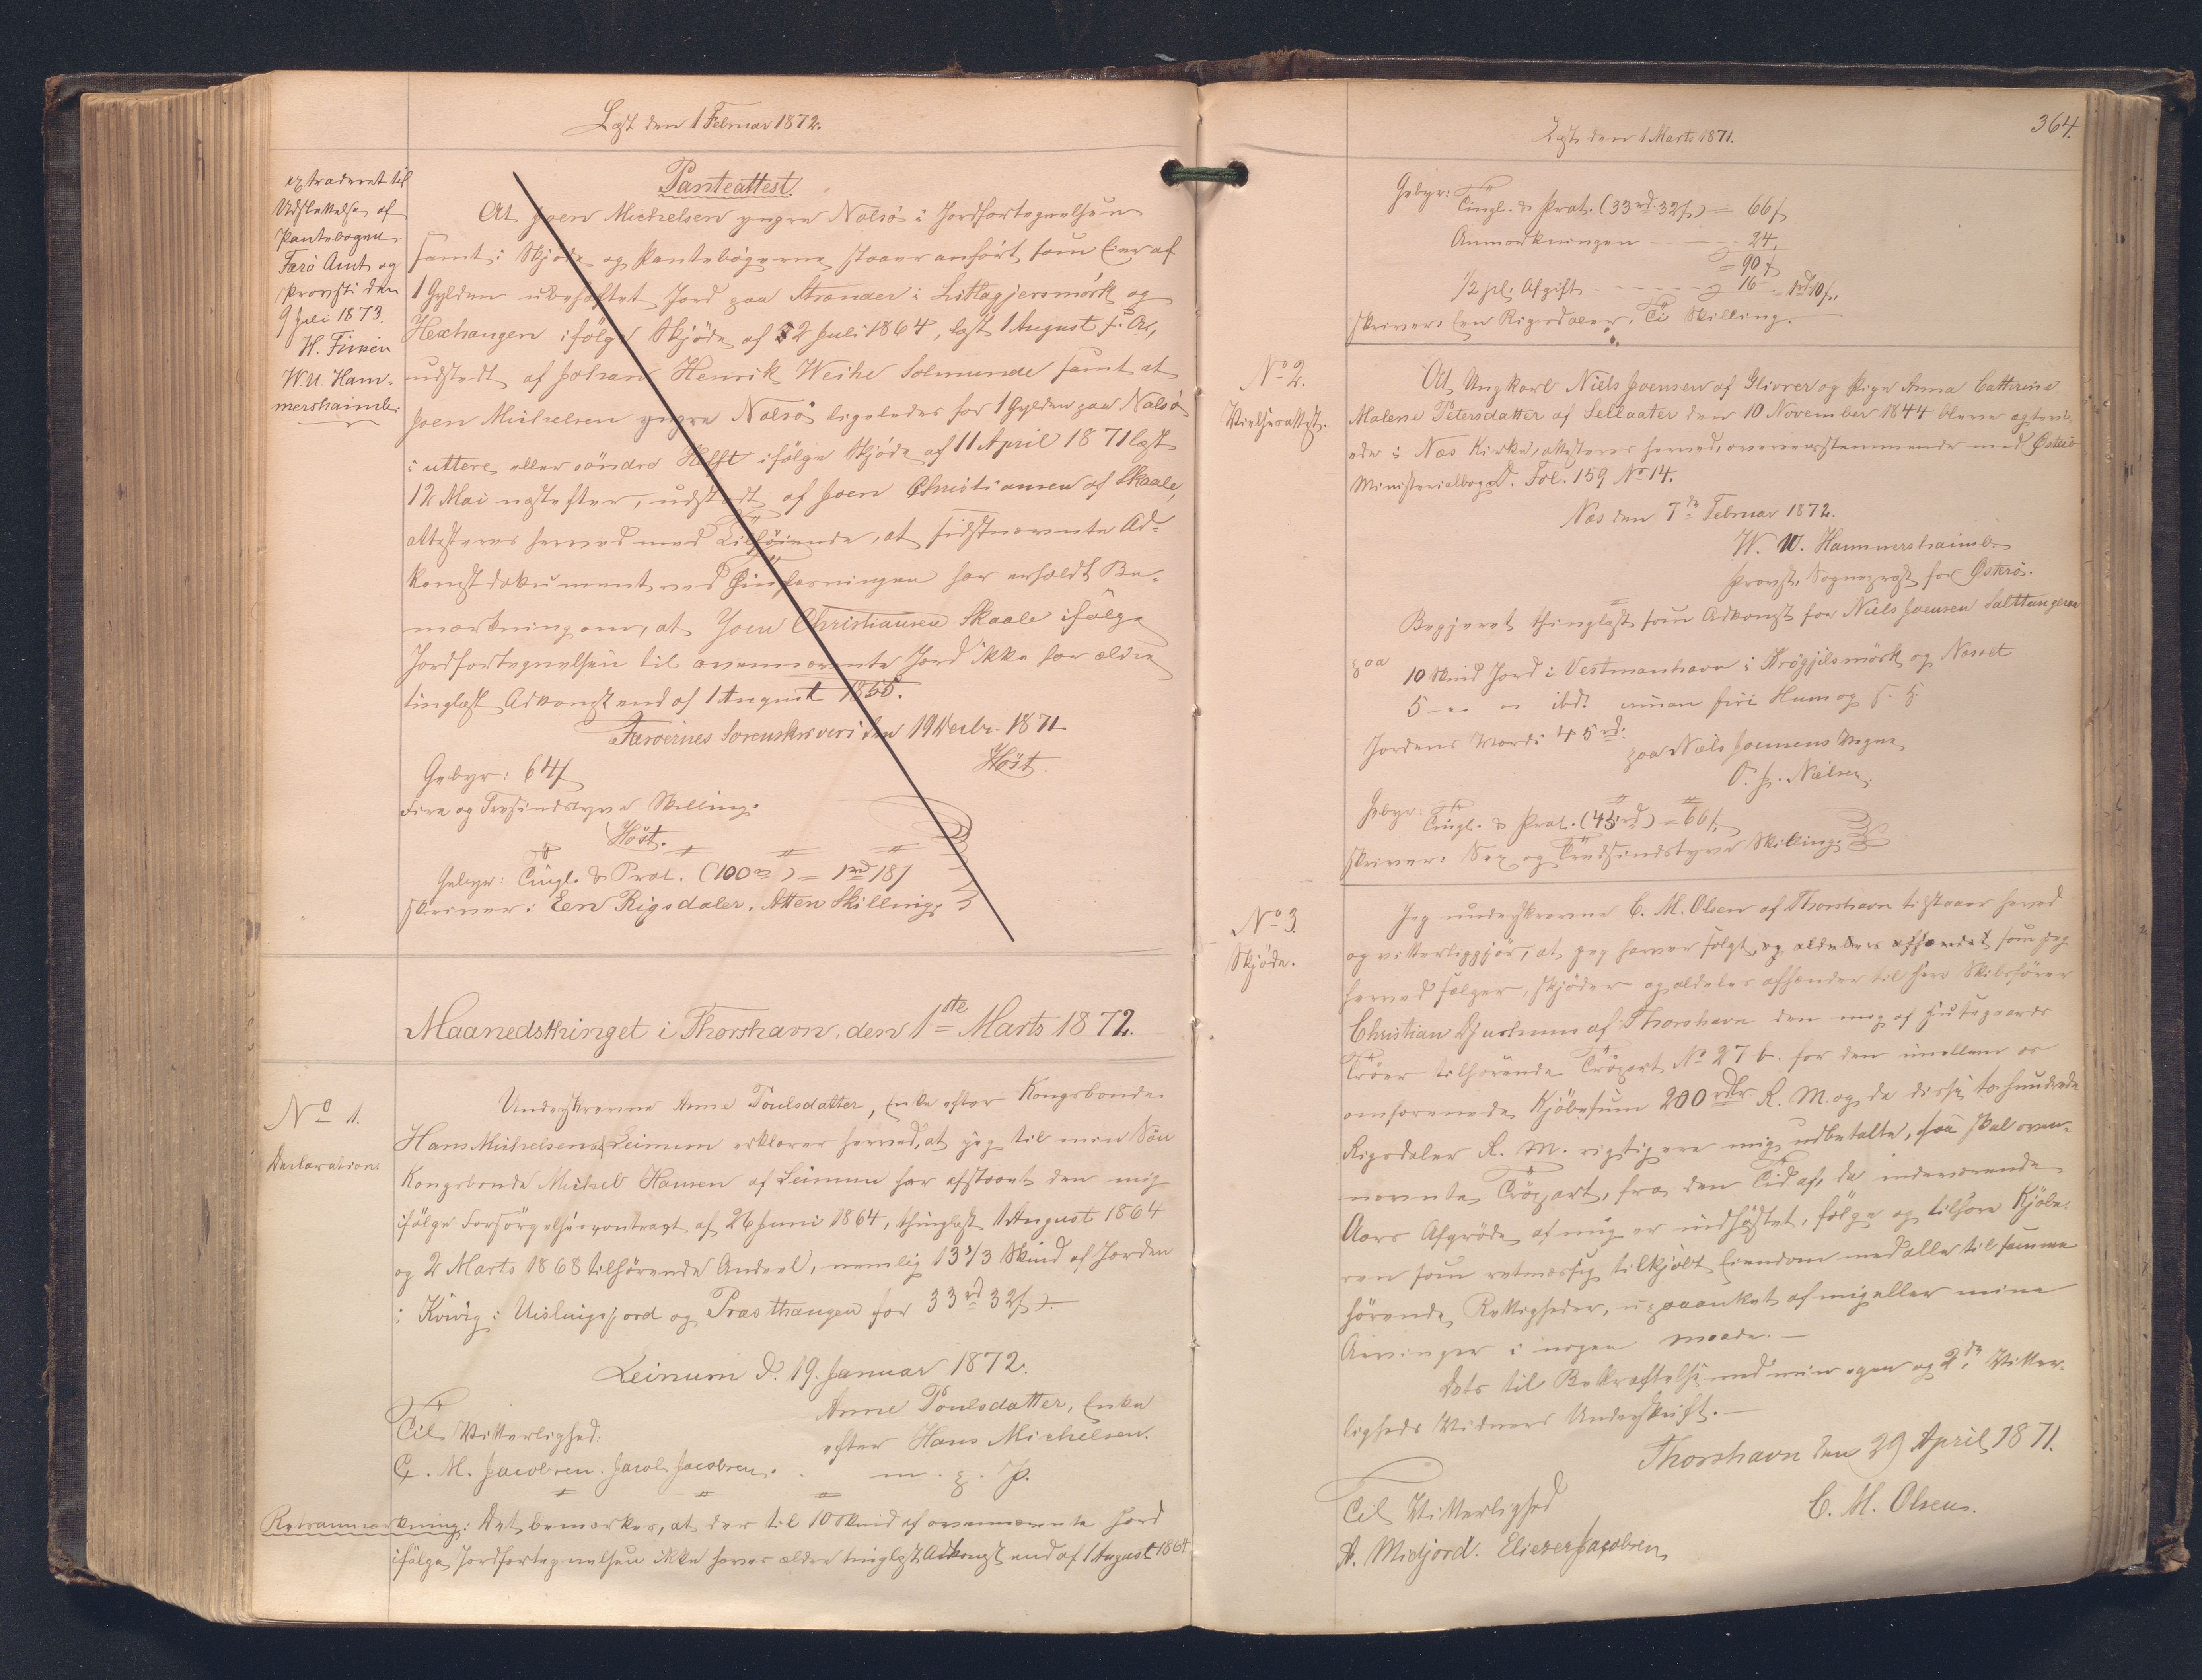 Læst den 1 Februar 1872.
extraderet til
Udslettelse af
Pantebogen.
Færö Amt og
Provsti den
9 Juli 1873.
H. Finsen
W.U. Ham-
mershaimb.
Panteattest.
At Joen Michelsen yngre Nolsö i Jordfortegnelsen
samt i Skjöde og Pantebögerne staaer anført som Eier af
1 Gylden ubehæftet Jord paa Strænder i Litlagjersmörk og
Hexhangen ifölge Skjöde af 22 Juli 1864, læst 1 August s. Ar,
udstedt af Johan Henrik Weihe Solmunde samt at
Joen Michelsen yngre Nolsö ligeledes for 1 Gylden paa Nolsö
i uttere eller söndre Helft ifölge Skjöde af 11 April 1871 læst
12 Mai næstefter, udstedt af Joen Christiansen af Skaale,
attesteres herved med Tilföiende, at sidstnævnte Ad-
komstdokument ved Tinglæsningen har erholdt Be-
mærkning om, at Joen Christiansen Skaale ifölge
Jordfortegnelsen til ovennævnte Jord ikke har ældre
tinglæst Adkomst end af 1 August 1855.
Færoernes Sorenskriveri den 19 Decbr. 1871
Höst.
Gebyr: 64 ſ
Fire og Tresindstyve Skilling.
Höst.
Gebyr: Tingl. & Prot. (100 rd) = 1 rd 18 ſ
skriver: Een Rigsdaler, Atten Skilling.
Maanedsthinget i Thorshavn, den 1ste Marts 1872.
No 1.
Declaration.
Underskrevne Anne Poulsdatter, Enke efter Kongsbonde
Hans Michelsen Leinum erklærer herved, at jeg til min Sön
Kongsbonde Michel Hansen af Leinum har afstaaet den mig
ifölge Forsörgelsescontract af 26 Juni 1864, thinglæst 1 August 1864
og 2 Marts 1868 tilhörende Andeel, nemlig 13 1/3 Skind af Jorden
i Kvivig i Uislingsjord og Præsthaugen for 33 rd 32 ſ.
Leinum d. 19. Januar 1872.
Anne Poulsdatter, Enke
efter Hans Michelsen.
m. f. P.
Til Vitterlighed:
C. M. Jacobsen. Jacob Jacobsen.
Retsanmærkning: Det bemærkes, at der til 10 Skind af ovennævnte Jord
ifölge Jordfortegnelsen ikke haves ældre tinglæst Adkomst end af 1 August 1864
364.
Læst den 1 Marts 1871.
Gebyr: Tingl. & Prot. (33 rd 32 ſ) = 66 ſ
Anmærkningen - - - 24,
= 90 ſ
1/2 pCt. Afgift - - - 16 = 1 rd 10 ſ,
skriver: Een Rigsdaler, Ti Skilling.
No 2.
Vielsesattest.
At Ungkarl Niels Joensen af Glivrer og Pige Anna Cathrine
Malene Petersdatter af Sellaater den 10 November 1844 bleve ægtevi-
ede i Næs Kirke, attesteres herved, overensstemmende med Österö
Ministerialbog D. Fol. 159 No 14.
Næs den 7de Februar 1872.
W. U. Hammershaimb.
Provst, Sognepræst for Österö.
Begjeret thinglæst som Adkomst for Niels Joensen Salttangerer
paa 10 Skind Jord i Vestmanhavn i Krögjilsmörk og Næsset
5 - " " ibd. innan firi Hum og s. s.
Jordens Værdi 45 rd.
paa Niels Joensens Vegne
O. J. Nielsen.
Gebyr: Tingl. & Prot. (45 rd) = 66 ſ.
skriver: Sex og Tredsindstyve Skilling.
No 3.
Skjöde.
Jeg underskrevne C. M. Olsen af Thorshavn tilstaaer herved
og vitterliggjör, at jeg haver solgt, og aldeles afhændet som jeg
herved sælger, skjöder og aldeles afhænder til Herr Skibsförer
Christian Djurhuus af Thorshavn den mig af Hutegaards
Tröer tilhörende Tröpart No 27 b. for den imellem os
omforenede Kjöbesum 200 rdlr R. M. og da disse to hundrede
Rigsdaler R. M. rigtig ere mig udbetalte, saa skal oven-
nævnte Tröpart, fra den Tid af, da indeværende
Aars Afgröde af mig er indhöstet, fölge og tilhöre Kjöbe-
ren som retmæssig tilkjöbt Eiendom med alle til samme
hörende Rettigheder, upaaanket af mig eller mine
Arvinger i nogen Maade. —
Dets til Bekræftelse med min egen og 2de Vitter-
ligheds Vidners Underskrift. —
Thorshavn den 29 April 1871.
C. M. Olsen.
Til Vitterlighed
A. Midjord. Eliezer Jacobsen